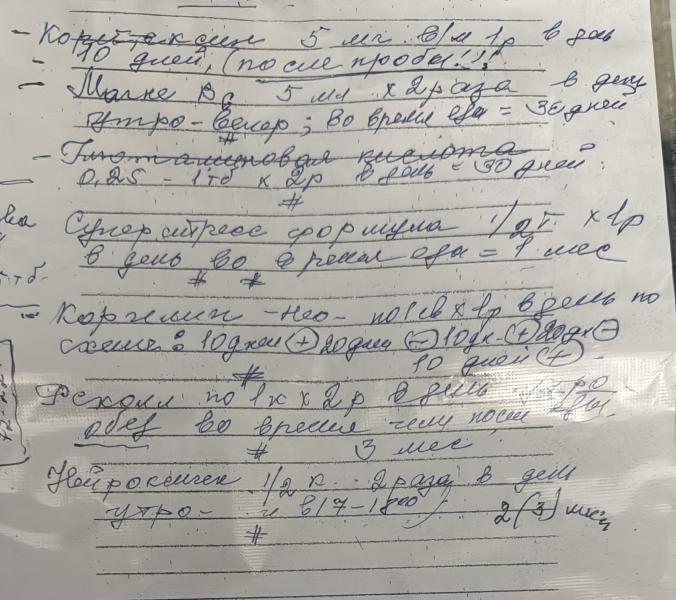 - Кортексин 5 мг в/м 1р в день
- 10 дней, (после пробы!!!
- Магне В6 5 мл х 2 раза в день
утро - вечер; во время еды = 30 дней
#
- Глютаминовая кислота
0,25 - 1 тб х 2р в день = 30 дней
#
Суперстресс формула 1/2 т. х 1р
в день во время еды = 1 мес
# #
- Кортилин - Нео - по 1 св х 1р в день по
схеме: 10 дней (+) 20 дней (-) 10 дн. (+) 20 дн (-)
10 дней (+)
#
по 1к х 2р в день утро
обед во время или после еды.
# 3 мес
1/2 к. 2 раза в день
утро - и в 17-18 00 2(3) мес
#